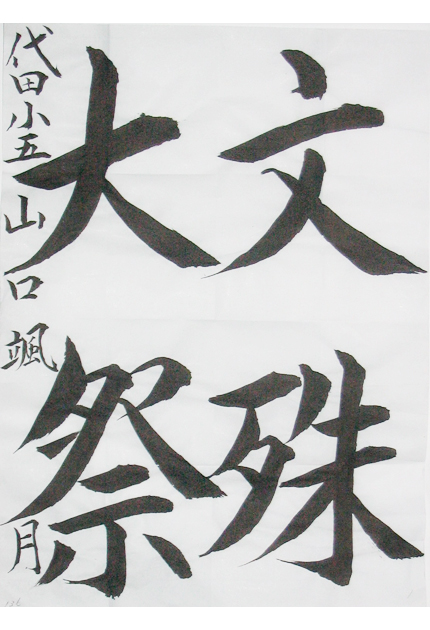 文殊
大祭
代田小五 山口颯月